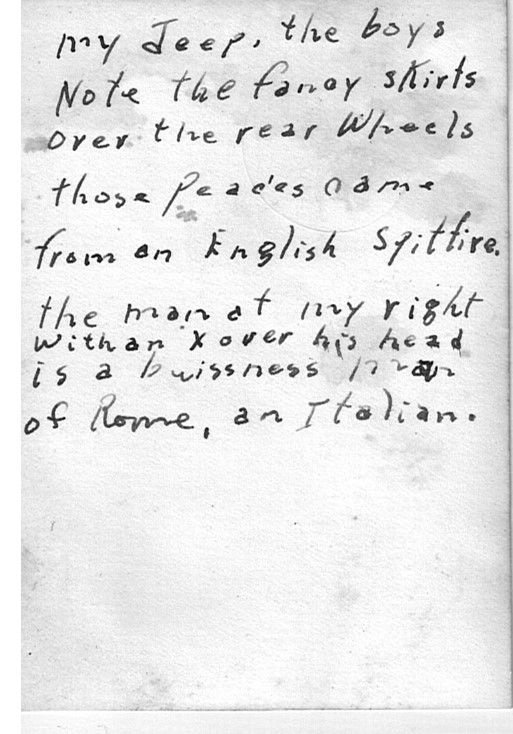 my Jeep, the boys
Note the fancy skirts
over the rear Wheels
those Peaces came
from an English Spitfire.
the man at my right
with an x over his head
is a buissness man
of Rome, an Italian.